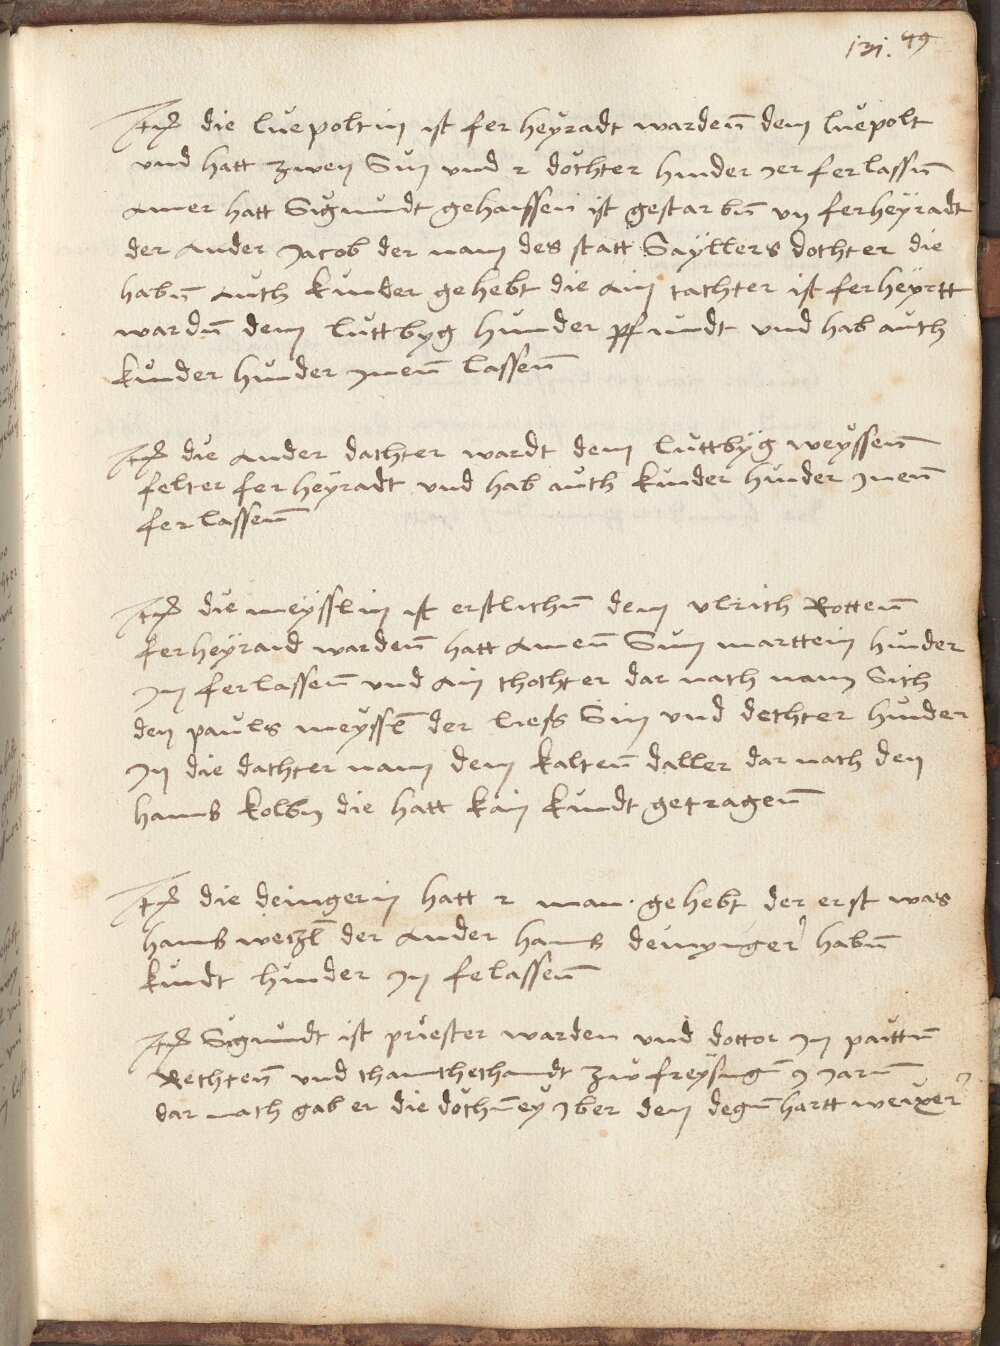 131. 49
Itē die luepoltin ist fer heyradt wardeñ dem luepolt
und hatt zwen Sun und 2 dochter hinder ier ferlassn̄
ainer hatt Sigmundt gehaissen ist gestarbn̄ un ferheyradt
der ander Jacob der nam des statt Sayllers dochter die
habn̄ auch kinder gehebt die ain tachter ist ferheyrtt
wardn̄ dem luttbyg hunder pfundt und hab auch
kinder hinder ineñ lasseñ
Itē die ander dachter wardt dem luttbyg weysseñ
felter fer heyradt und hab auch kinder hinder ineñ
fer lasseñ
Itē die meysslin ist erstlichn̄ dem ulrich Rotteñ
ferheyraid wardeñ hatt aineñ Sun marttein hinder
im ferlasseñ und ain thochter dar nach nam Sich
den pauls meyssl̄ der liess Sin und dechter hinder
Im die dachter nam dem kalteñ daller dar nach den
hanns kolbn die hatt kain kindt getrageñ
Itē die deingerin hatt 2 man. gehebt der erst was
hanns weizl̄ der ander hanns deinynger habn̄
kindt hinder Im felasseñ
Itē Sigmundt ist priester warden und dottor Im paittn̄
Rechteñ und thamthechandt zu freysingn̄ 9 Jarn̄
dar nach gab er die dechn̄ey yber dem degn̄hartt weixer